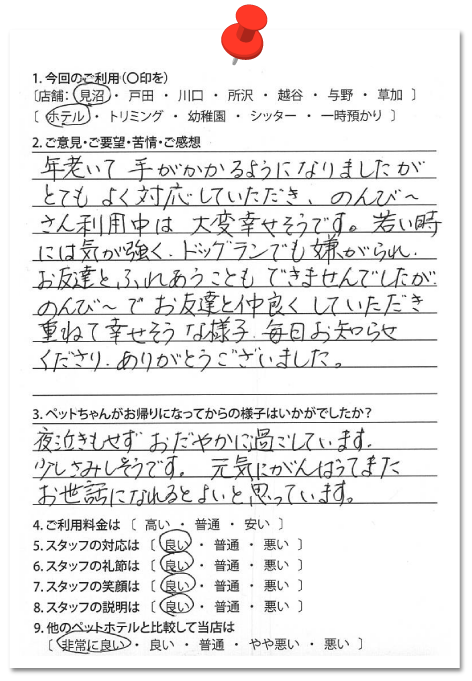 1. 今回のご利用(〇印を)
〔店舗： 見沼 ・ 戸田 ・ 川口 ・ 所沢 ・ 越谷 ・ 与野 ・ 草加 〕
〔 ホテル ・ トリミング ・ 幼稚園 ・ シッター ・ 一時預かり 〕
2. ご意見・ご要望・苦情・ご感想
年老いて 手がかかるようになりましたが
とても よく対応していただき、のんび〜
さん利用中は 大変幸せそうです。若い時
には気が強く、ドッグランでも嫌がられ、
お友達とふれあうことも できませんでしたが、
のんび〜で お友達と仲良く していただき
重ねて幸せそうな様子、毎日お知らせ
くださり、ありがとうございました。
3. ペットちゃんがお帰りになってからの様子はいかがでしたか？
夜泣きもせず おだやかに過ごしています。
少しさみしそうです。 元気にがんばってまた
お世話になれるとよいと思っています。
4. ご利用料金は 〔 高い ・ 普通 ・ 安い 〕
5. スタッフの対応は 〔 良い ・ 普通 ・ 悪い 〕
6. スタッフの礼節は 〔 良い ・ 普通 ・ 悪い 〕
7. スタッフの笑顔は 〔 良い ・ 普通 ・ 悪い 〕
8. スタッフの説明は 〔 良い ・ 普通 ・ 悪い 〕
9. 他のペットホテルと比較して当店は
〔 非常に良い ・ 良い ・ 普通 ・ やや悪い ・ 悪い 〕